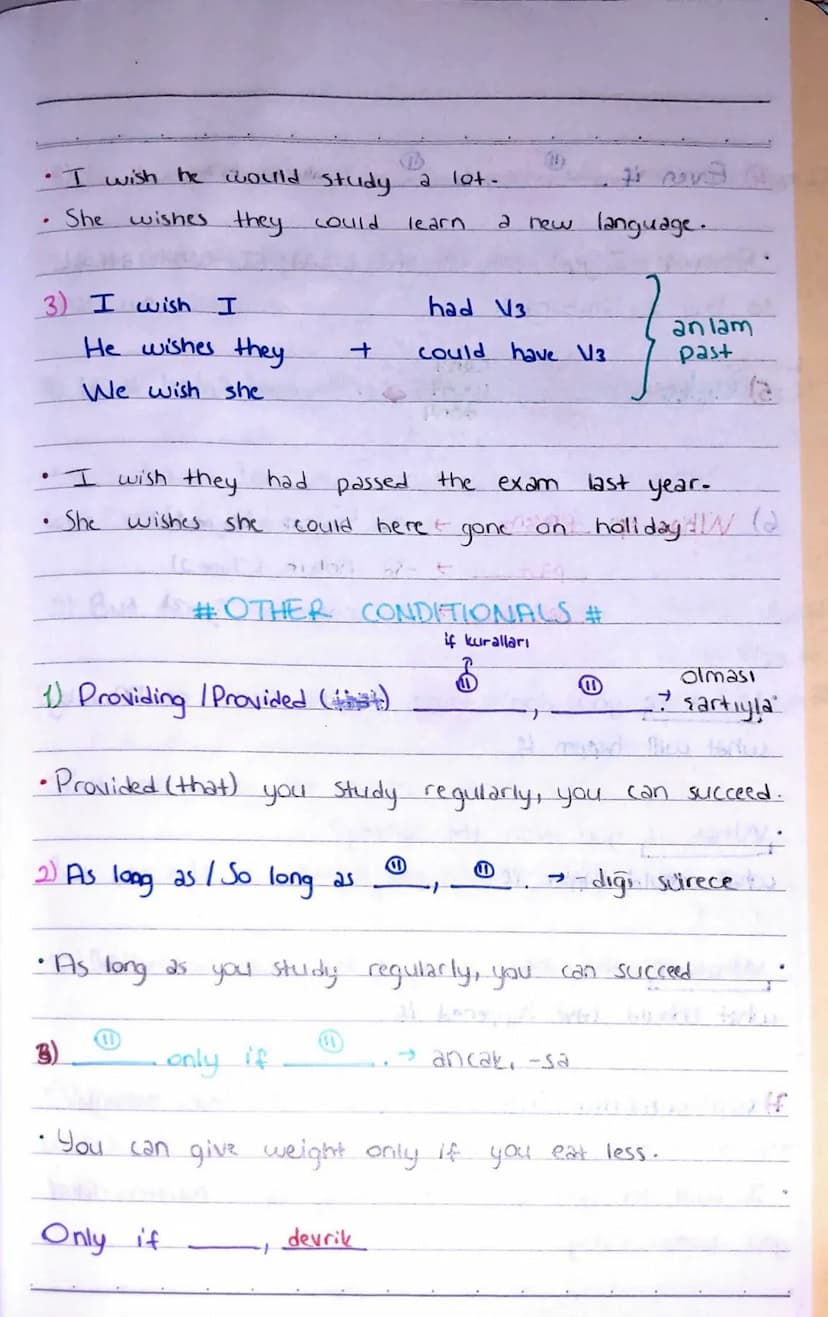 • I wish he would study a lot.
• She wishes they could learn a new language.
3) I wish I had V3
He wishes they + could have V3
We wish she
anlam
past
• I wish they had passed the exam last year.
• She wishes she could here gone on holiday
# OTHER CONDITIONALS #
if kuralları
1) Providing / Provided (that) ____, ____. → olması şartıyla
• Provided (that) you study regularly, you can succeed.
2) As long as / So long as ____, ____. → -dığı sürece
• As long as you study regularly, you can succeed
3) ____ only if ____. → ancak, -sa
• You can give weight only if you eat less.
Only if ____, devrik